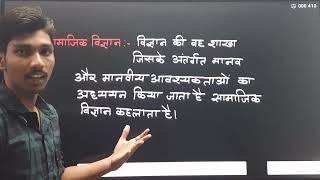 माजिक विज्ञान :- विज्ञान की वह शाखा
जिसके अंतर्गत मानव
और मानवीय आवश्यकताओं का
अध्ययन किया जाता है सामाजिक
विज्ञान कहलाता है।